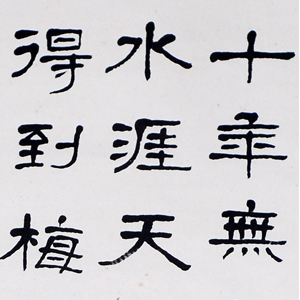 十年無
水涯天
得到梅